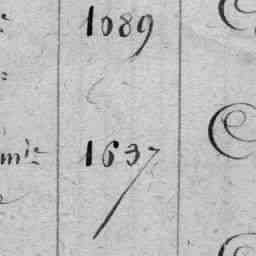 1089
mie 1637